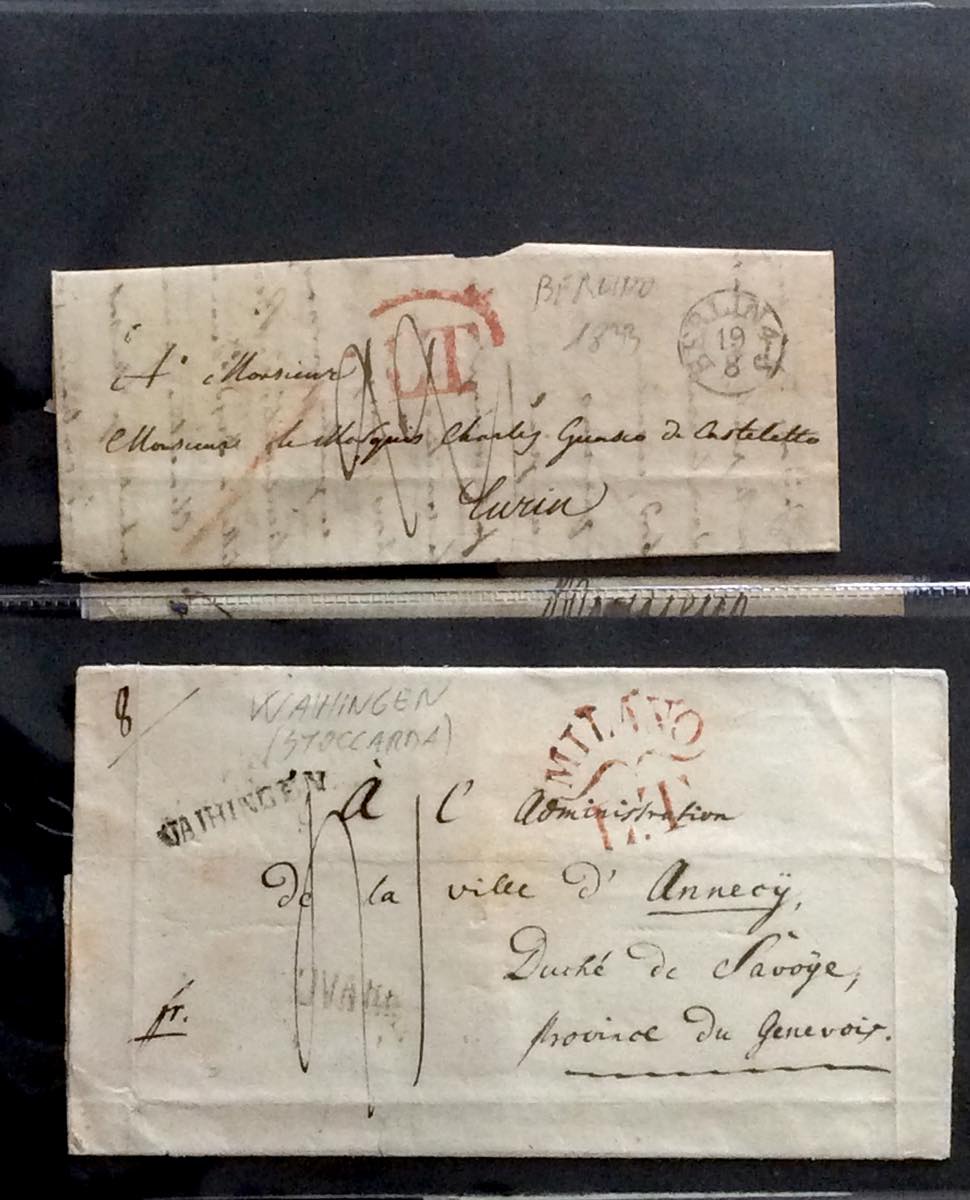 BERLINO
1833
BERLIN
19
8
LT
A Monsieur
Monsieur le Marquis Charles de Casteletto
Turin
8
WAIHINGEN
(STOCCARDA)
MILANO
L.T
VAIHINGEN
À l'Administration
De la ville d'Annecÿ,
Duché de Savoÿe,
Province du Genevois.
fr.